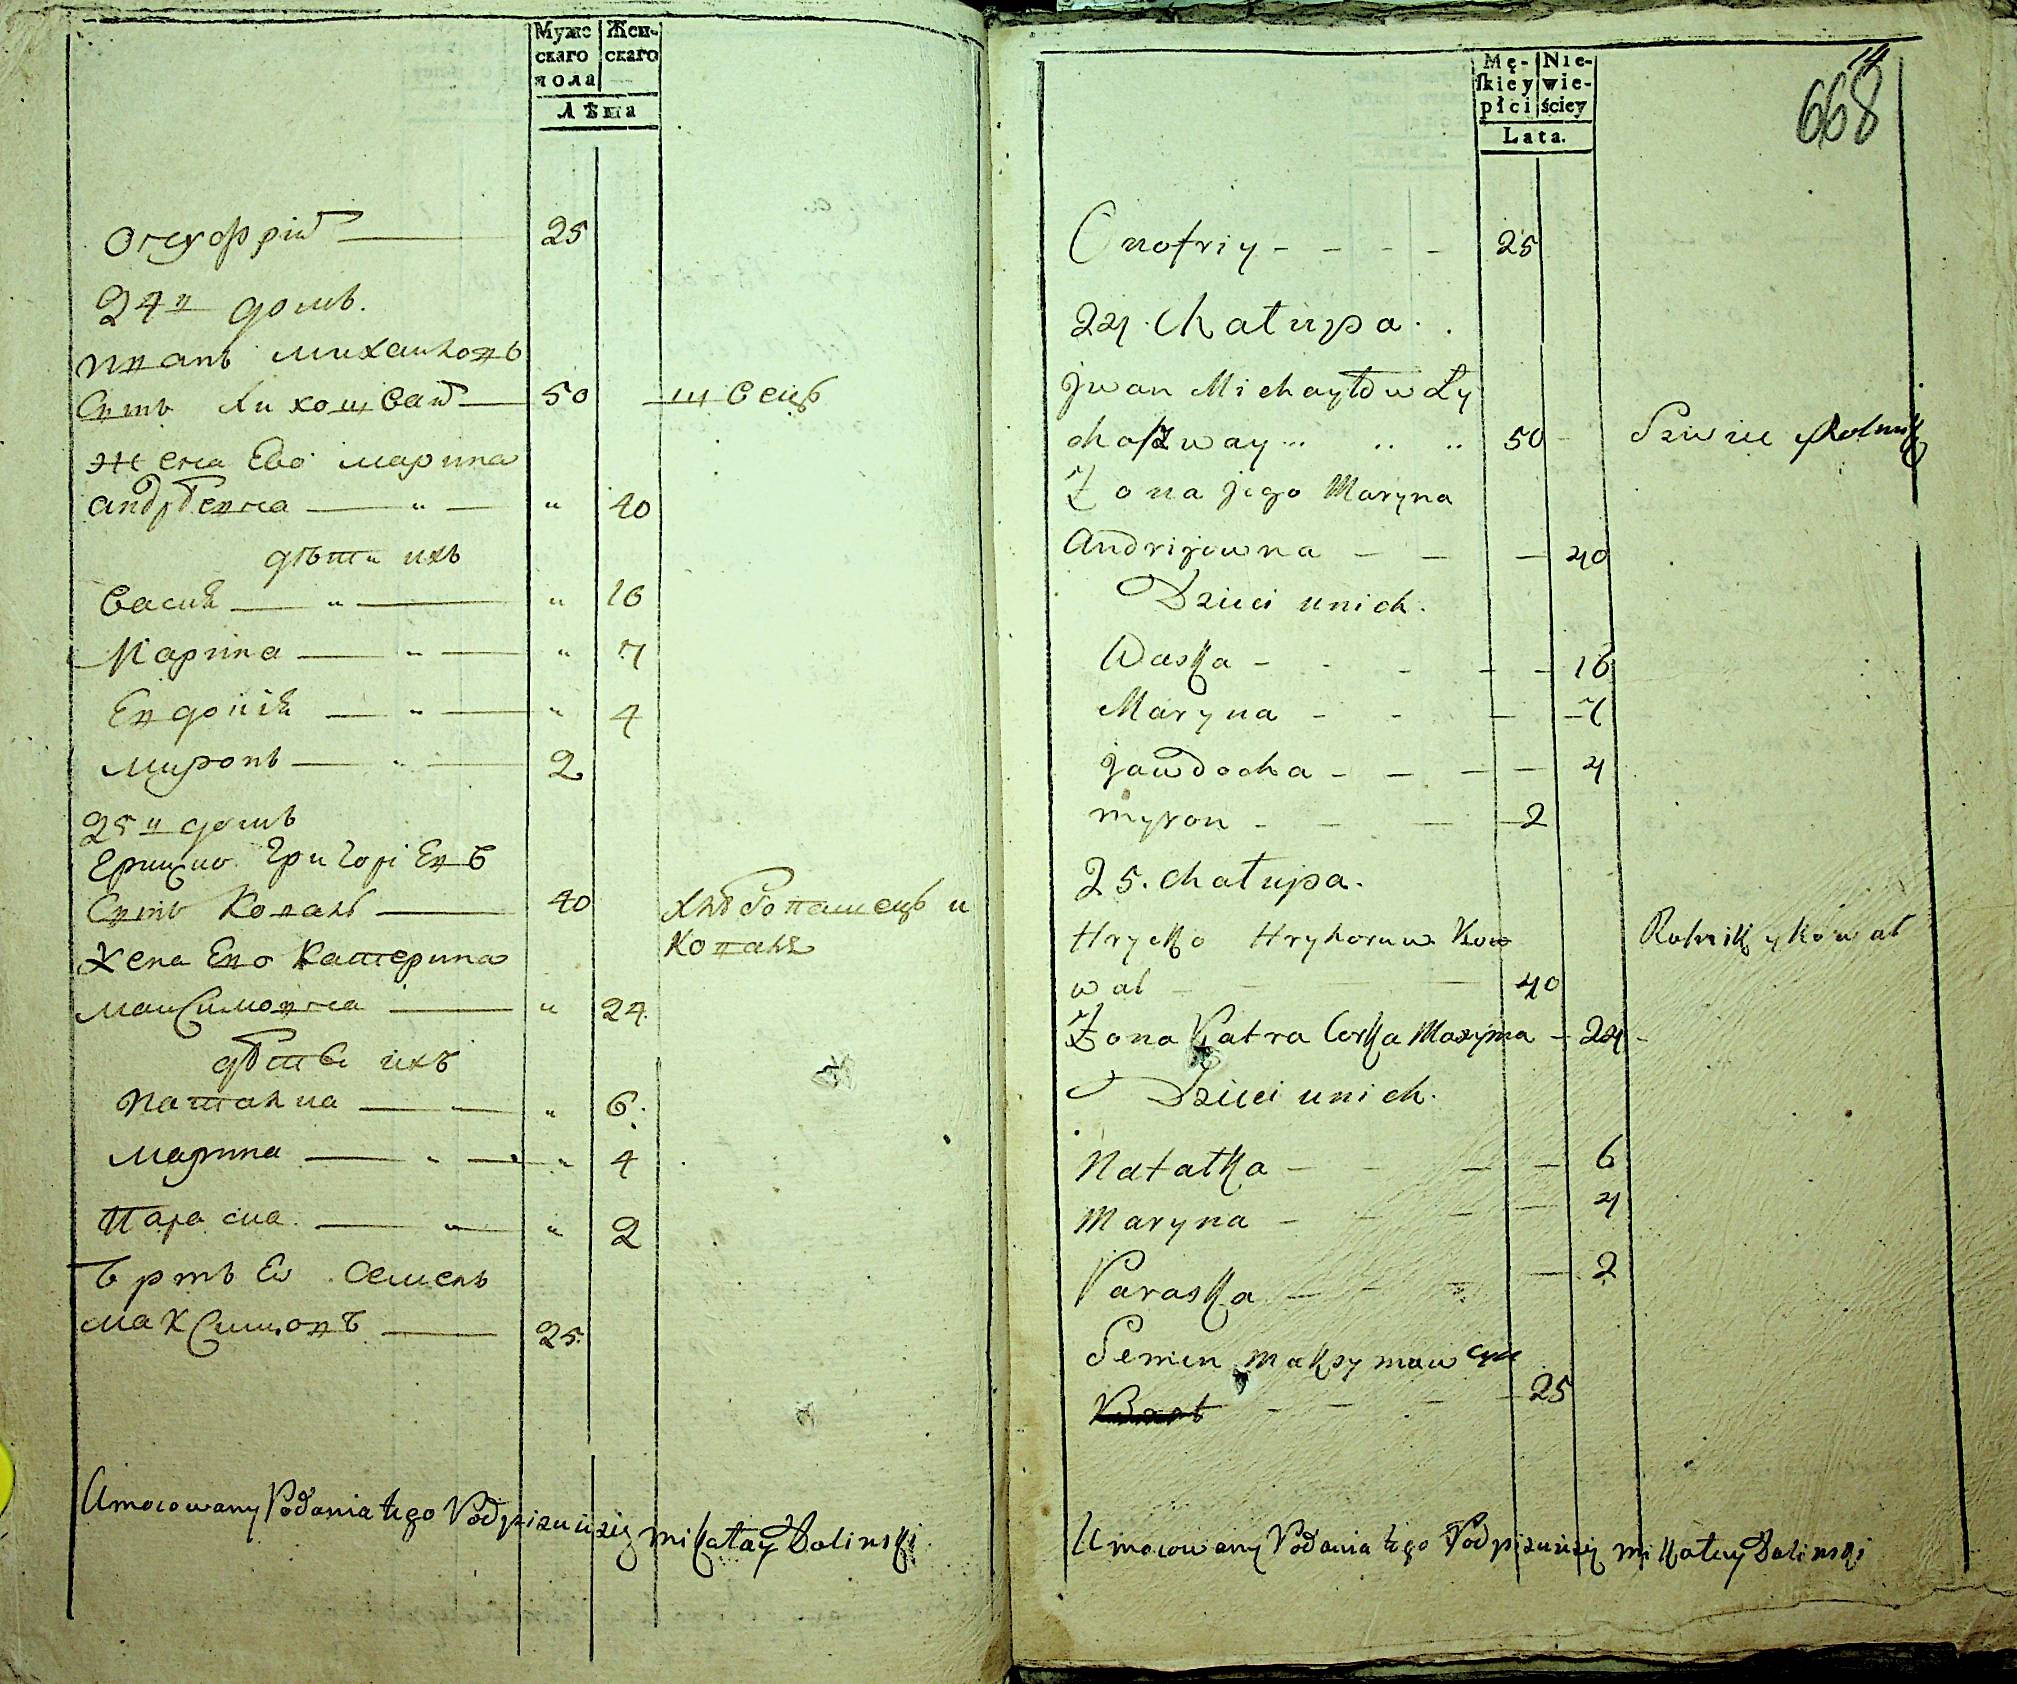 Муже
скаго
пола
Жен-
скаго
Лѣта
Онуфрій 25
24й домъ.
Иванъ Михайловъ
Сынъ Лихошвай 50 швецъ
Жена Его марина
андрѣевна " 40
дѣти ихъ
Васка " 16
Марина " 7
Евдокія " 4
миронъ 2
25й домъ
Грицко Григоріевъ
Сынъ Коваль 40 хлѣбопашецъ и
Жена Его Катерина коваль
максимовна " 24.
дѣти ихъ
Наталка " 6.
марина " 4
Параска " 2
Семенъ
максимовъ 25.
Umocowany Podania tego Podpisuie się mikołay Dolinski
14
668
Mę-
skiey
płci
Nie-
wie-
ściey
Lata.
Onofriy - - - - 25
24. Chałupa.
Jwan Michayłow Ly
choszway 50 Szwiec y Rolnik
Żona jego Maryna
Andrijowna - - - 40
Dzieci unich.
Waska - - - - - 16
Maryna - - - - 7
Jawdocha - - - - 4
myron - - - - 2
25. chałupa.
Hrycko Hryhoruw Kow Rolnik y kowal
wal - - - 40
Żona Katra Corka Maxyma - 24 -
Dzieci unich.
Natałka - - - - 6
Maryna - - - - 4
Paraska - - - - 2
Semen Maksymow syn
- - - - 25
Umocowany Podania tego Podpisuie się mikołay Dolinski